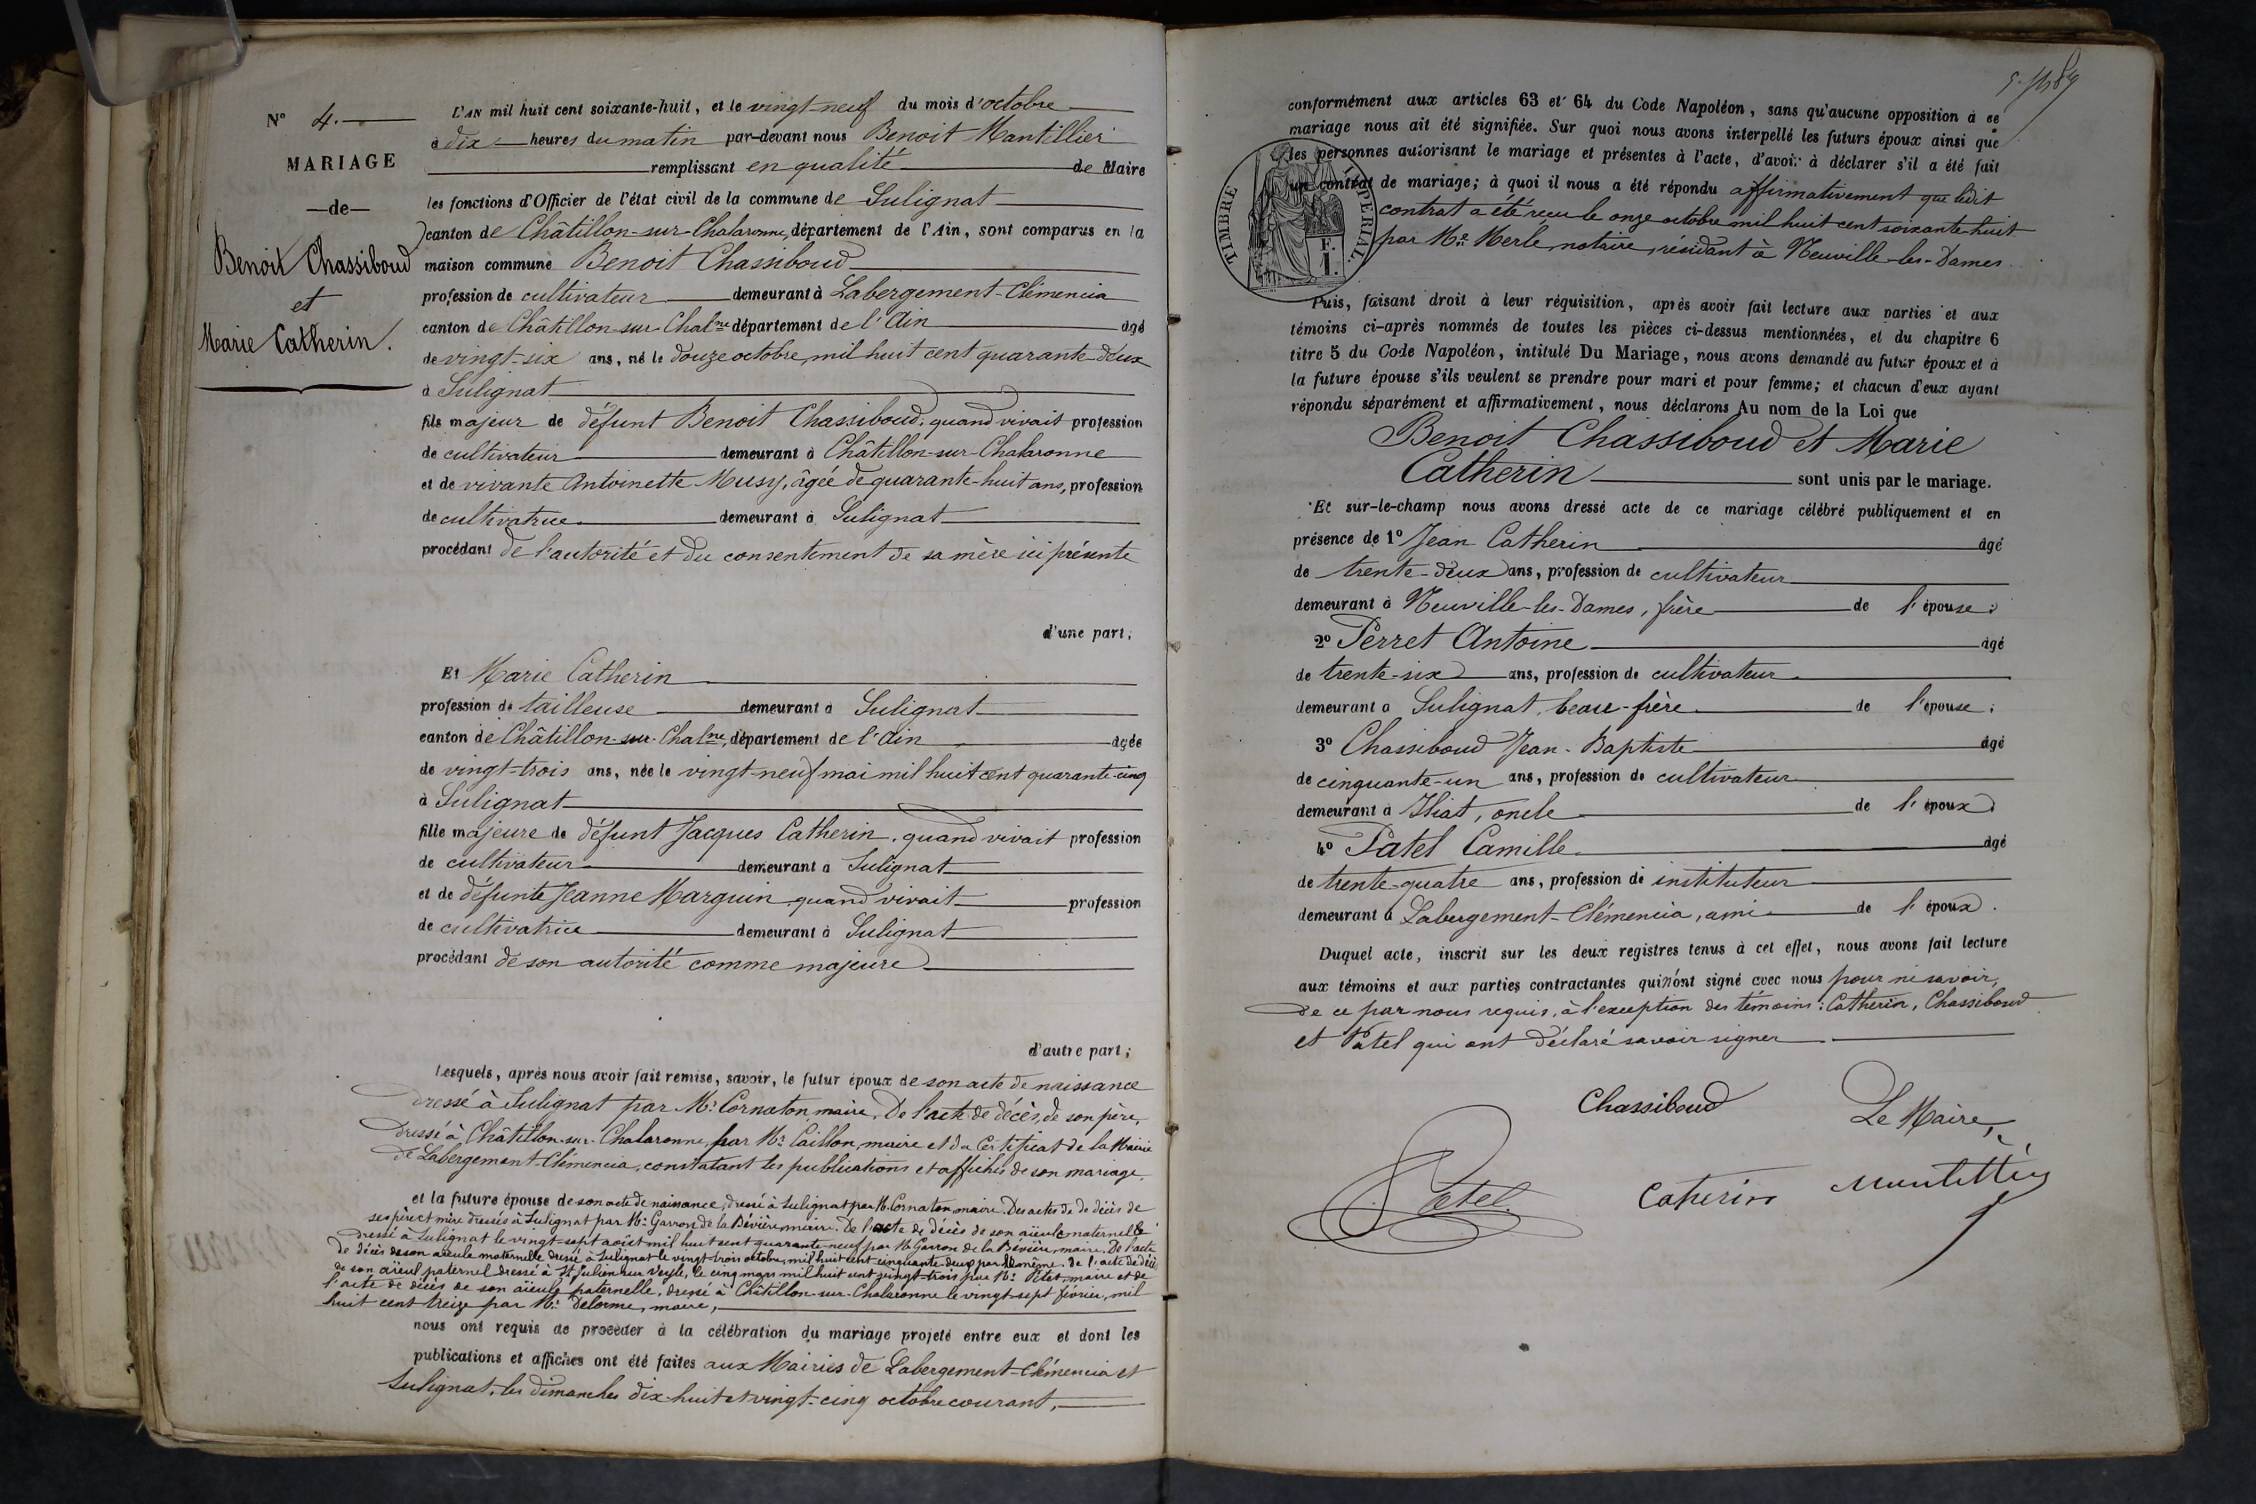 N° 4.
MARIAGE
—de—
Benoit Chassiboud
et
Marie Catherin.
L'AN mil huit cent soixante-huit, et le vingt-neuf du mois d'octobre
à dix heures du matin par-devant nous Benoit Mantillier
remplissant en qualité de Maire
les fonctions d'Officier de l'état civil de la commune de Sulignat
canton de Châtillon-sur-Chalaronne, département de l'Ain, sont comparus en la
maison commune Benoit Chassiboud
profession de cultivateur demeurant à Labergement-Clémencia
canton de Châtillon-sur-Chalne département de l'Ain âgé
de vingt-six ans, né le douze octobre mil huit cent quarante-deux
à Sulignat
fils majeur de défunt Benoit Chassiboud, quand vivait profession
de cultivateur demeurant à Châtillon-sur-Chalaronne
et de vivante Antoinette Musy, âgée de quarante-huit ans, profession
de cultivatrice demeurant à Sulignat
procédant de l'autorité et du consentement de sa mère ici présente
d'une part;
Et Marie Catherin
profession de tailleuse demeurant à Sulignat
canton de Châtillon-sur-Chalne, département de l'Ain âgée
de vingt-trois ans, née le vingt-neuf mai mil huit cent quarante-cinq
à Sulignat
fille majeure de défunt Jacques Catherin, quand vivait profession
de cultivateur demeurant à Sulignat
et de défunte Jeanne Marguin quand vivait profession
de cultivatrice demeurant à Sulignat
procédant de son autorité comme majeure
d'autre part;
Lesquels, après nous avoir fait remise, savoir, le futur époux de son acte de naissance
dressé à Sulignat par Mr Cornaton maire, De l'acte de décès, de son père,
dressé à Châtillon-sur-Chalaronne, par Mr Caillon, maire et du Certificat de la Mairie
de Labergement-Clémencia, constatant les publications et affiches de son mariage.
et la future épouse de son acte de naissance, dressé à Sulignat par M. Cornaton maire. Des actes de décès de
ses père et mère dressés à Sulignat par Mr Garron de la Bévière, maire. De l'acte de décès de son aïeule maternelle
dressé à Sulignat le vingt-sept août mil huit cent quarante-neuf par Mr Garron de la Bévière, maire. De l'acte
de décès de son aïeule maternelle dressé à Sulignat le vingt-trois octobre, mil huit cent cinquante-deux par le même. De l'acte de décès
de son aïeul paternel dressé à St Julien sur Veyle, le cinq mars mil huit cent vingt-trois par Mr maire et de
l'acte de décès de son aïeule paternelle, dressé à Châtillon-sur-Chalaronne le vingt-sept février, mil
huit cent treize par Mr Delorme, maire,
nous ont requis de procéder à la célébration du mariage projeté entre eux et dont les
publications et affiches ont été faites aux Mairies de Labergement-Clémencia et
Sulignat, les dimanches dix-huit et vingt-cinq octobre courant,
conformément aux articles 63 et 64 du Code Napoléon, sans qu'aucune opposition à ce
mariage nous ait été signifiée. Sur quoi nous avons interpellé les futurs époux ainsi que
les personnes autorisant le mariage et présentes à l'acte, d'avoir à déclarer s'il a été fait
un contrat de mariage; à quoi il nous a été répondu affirmativement que ledit
contrat a été reçu le onze octobre mil huit cent soixante-huit
par Me Merle, notaire, résidant à Neuville-les-Dames
TIMBRE IMPÉRIAL
F. I.
Puis, faisant droit à leur réquisition, après avoir fait lecture aux parties et aux
témoins ci-après nommés de toutes les pièces ci-dessus mentionnées, et du chapitre 6
titre 5 du Code Napoléon, intitulé Du Mariage, nous avons demandé au futur époux et à
la future épouse s'ils veulent se prendre pour mari et pour femme; et chacun d'eux ayant
répondu séparément et affirmativement, nous déclarons Au nom de la Loi que
Benoit Chassiboud et Marie
Catherin sont unis par le mariage.
Et sur-le-champ nous avons dressé acte de ce mariage célébré publiquement et en
présence de 1° Jean Catherin âgé
de trente-deux ans, profession de cultivateur
demeurant à Neuville-les-Dames, frère de l'épouse;
2° Perret Antoine âgé
de trente-six ans, profession de cultivateur
demeurant à Sulignat, beau-frère de l'épouse;
3° Chassiboud Jean-Baptiste âgé
de cinquante-un ans, profession de cultivateur
demeurant à Illiat, oncle de l'époux;
4° Patel Camille âgé
de trente-quatre ans, profession de instituteur
demeurant à Labergement-Clémencia, ami de l'époux.
Duquel acte, inscrit sur les deux registres tenus à cet effet, nous avons fait lecture
aux témoins et aux parties contractantes qui n'ont signé avec nous pour ne savoir,
de ce par nous requis, à l'exception des témoins: Catherin, Chassiboud
et Patel qui ont déclaré savoir signer
Chassiboud Le Maire,
Patel Catherin Mantillier